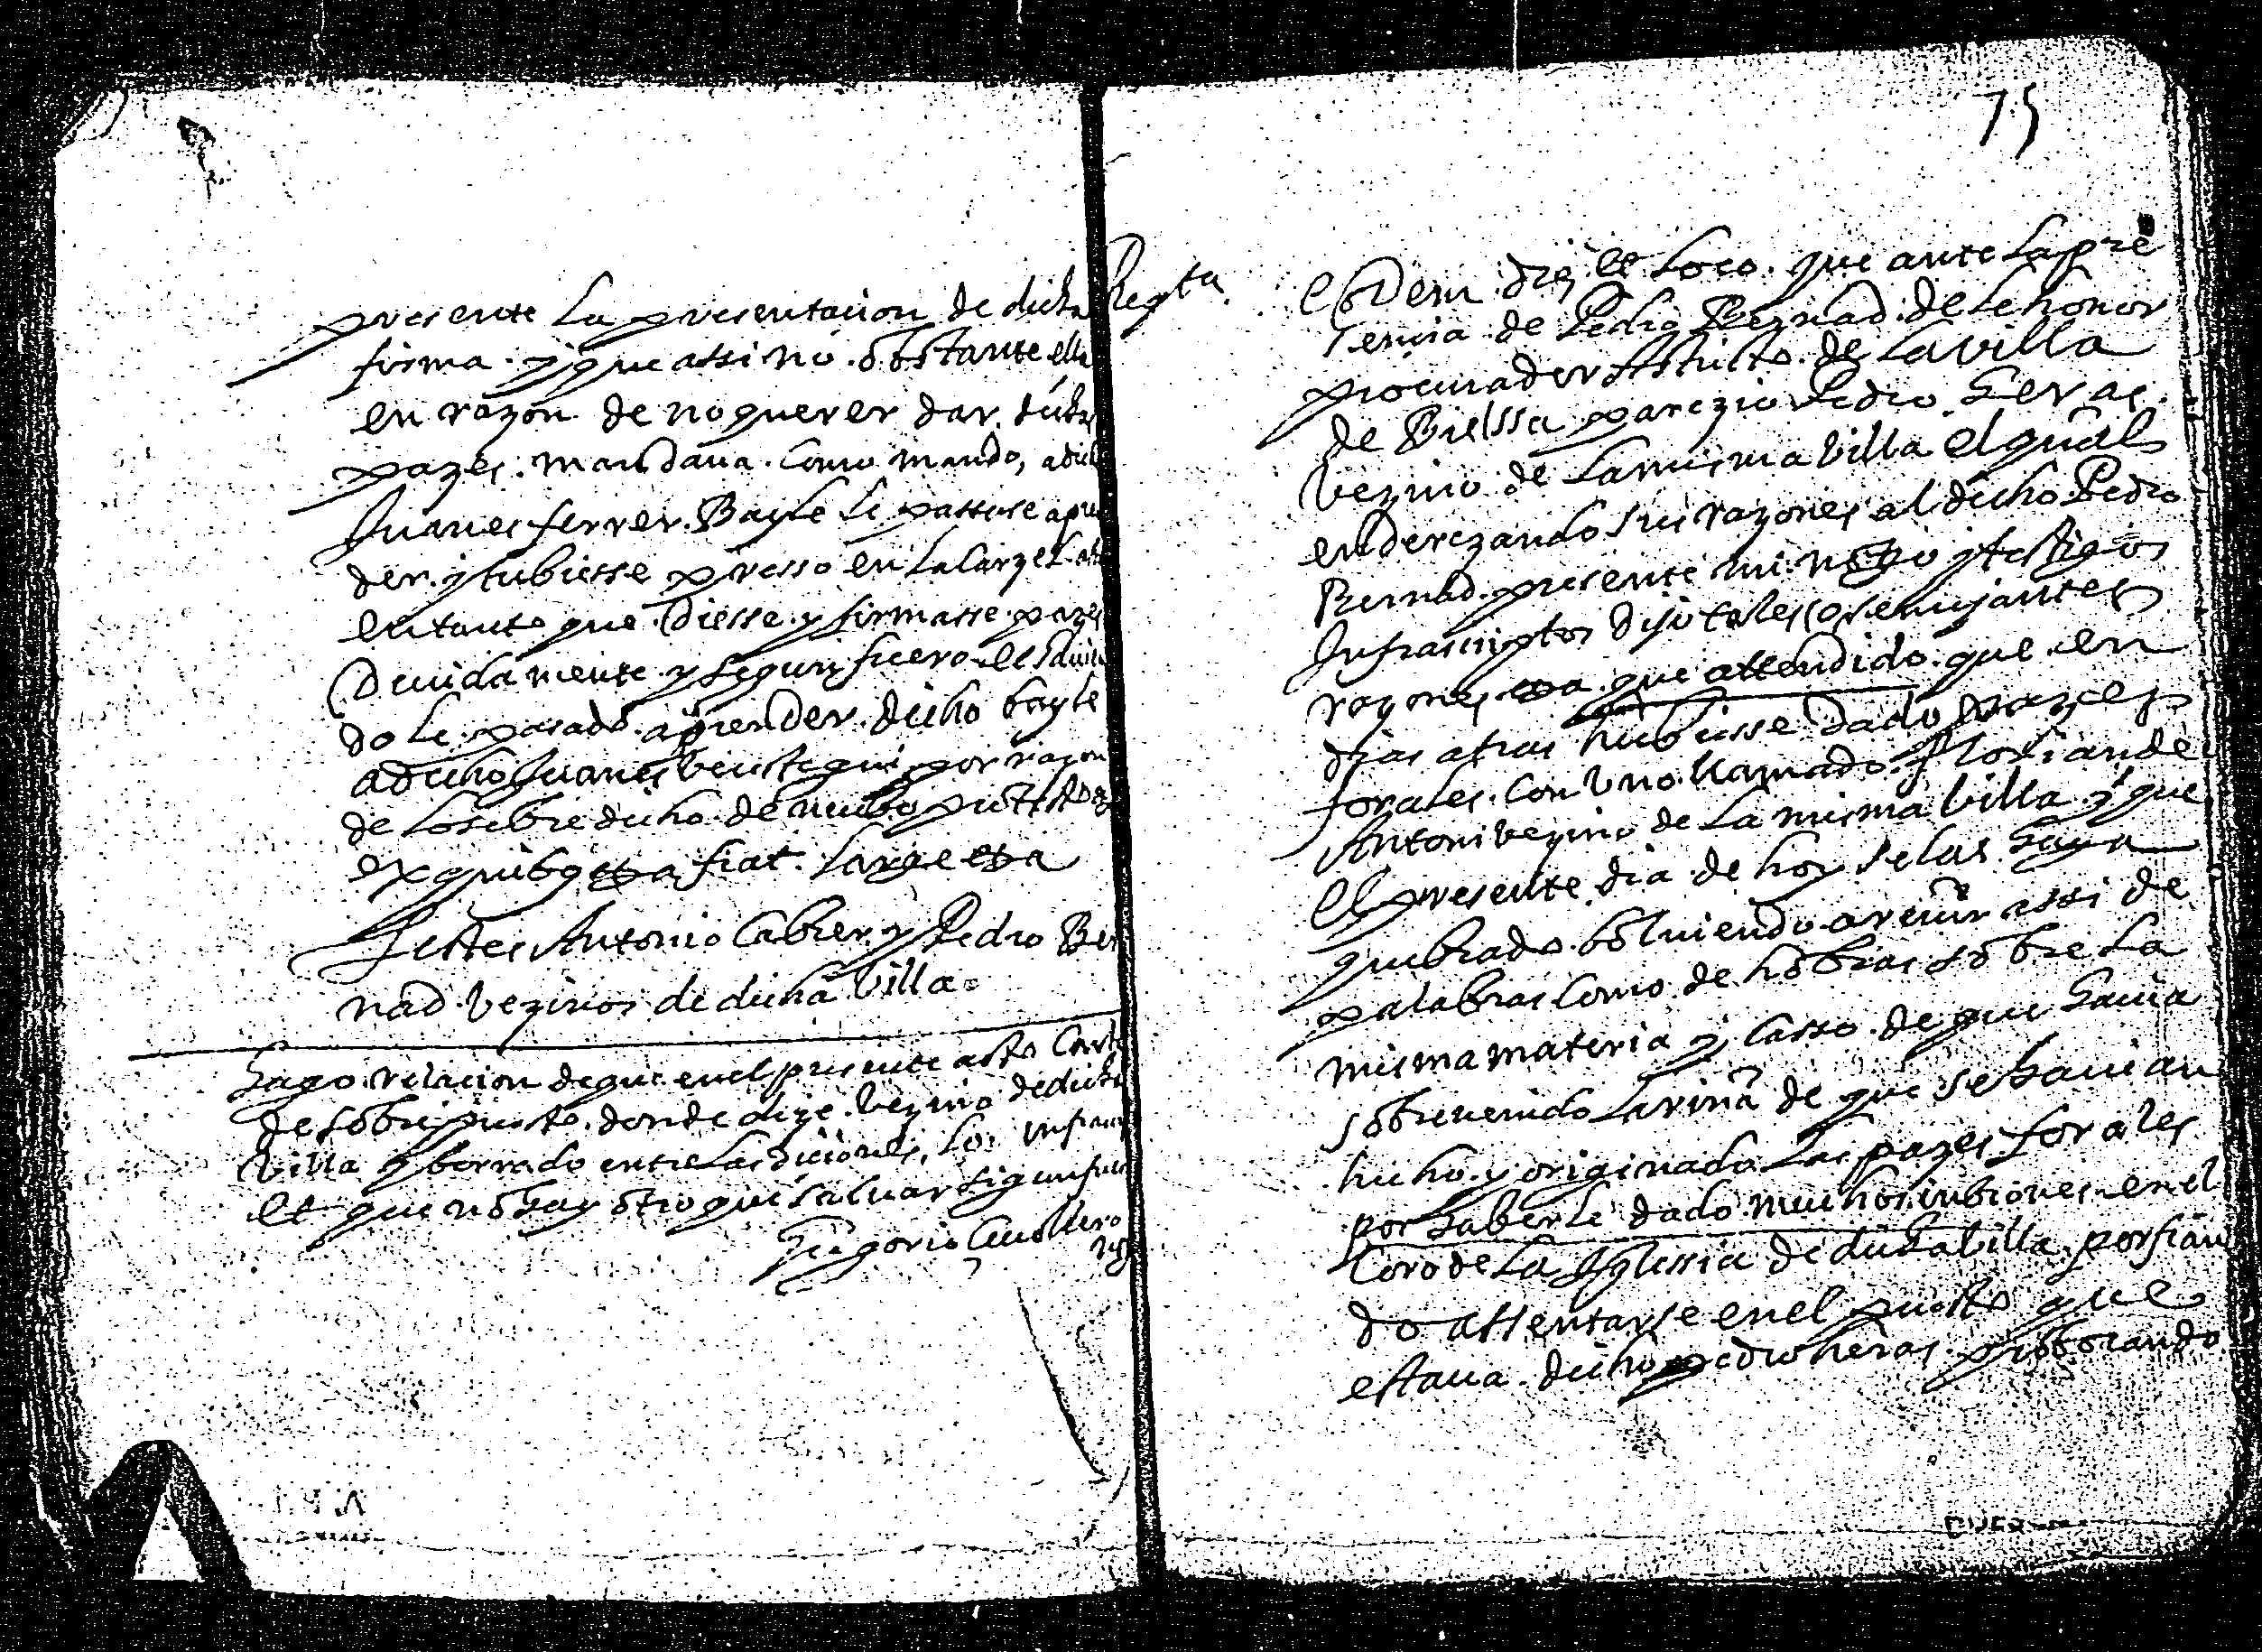 presente la presentacion de dicha
firma y que assi no obstante ella
en razon de no querer dar dicha
pazes mandaua como mando, a dich
Juanes ferrer Bayle le passase apren
der y tubiesse presso en la carzel
en tanto que diesse y firmasse pazes
Deuidamente y segun fuero et
do le passado aprender dicho bayle
a dicho Juanes por razon
de lo sobre dicho de nuebo protesto
ex quibus etta fiat large etta
Testes Antonio Cabrer y Pedro Ber
nad vezinos de dicha villa
Hago relacion de que en el presente acto Conste
de sobrepuesto donde dize vezino de dicha
villa y borrado entre las diciones, los infra
et que no hay otro que saluar segun fuero
Gregorio
75
Regta
Eodem die et loco que ante la pre
sencia de Pedro Bernad de
procurador Astricto de la villa
de Bielssa parezio Pedro Heras
vezino de la misma villa el qual
enderezando sus razones al dicho Pedro
Bernad presente mi notrio y testigos
Infrascriptos dijo tales o semejantes
razones etta que attendido que en
dias atras hubiesse dado pazes
forales con uno llamado Florian de
Antoni vezino de la misma villa y que
el presente dia de hoy se las haya
quebrado bolbiendo a reñir assi de
palabras como de hobras sobre la
misma materia y casso de que hauia
sobreuenido la riña de que se hauian
hecho y originado las pazes forales
por haberle dado muchos enbiones en el
Coro de la Iglessia de dicha villa porfian
do assentarse en el puesto que
estaua dicho pedro heras probocando